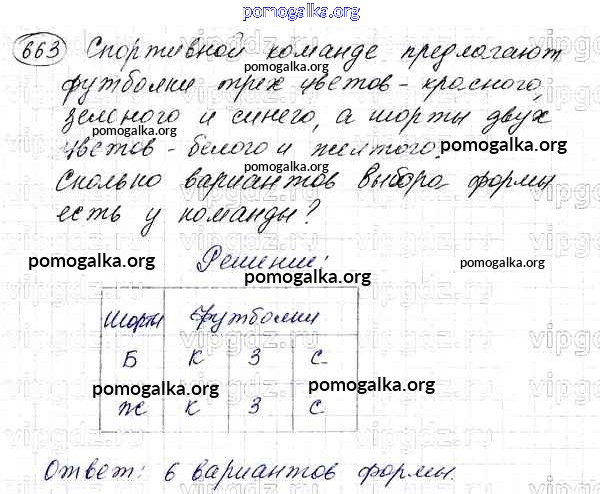 pomogalka.org
663 Спортивной команде предлагают
pomogalka.org
футболки трех цветов - красного,
зеленого и синего, а шорты двух
pomogalka.org
цветов - белого и желтого.
pomogalka.org pomogalka.org
Сколько вариантов выбора формы
есть у команды?
Решение:
pomogalka.org pomogalka.org
Шорты Футболки
Б К З С
pomogalka.org pomogalka.org
Ж К З С
Ответ: 6 вариантов формы.